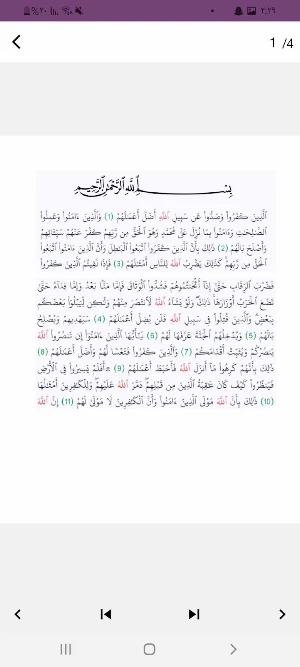 ٢:٢٩
%٢٠
1 /4
بِسْمِ ٱللَّهِ ٱلرَّحْمَٰنِ ٱلرَّحِيمِ
ٱلَّذِينَ كَفَرُوا۟ وَصَدُّوا۟ عَن سَبِيلِ ٱللَّهِ أَضَلَّ أَعْمَٰلَهُمْ (1) وَٱلَّذِينَ ءَامَنُوا۟ وَعَمِلُوا۟
ٱلصَّٰلِحَٰتِ وَءَامَنُوا۟ بِمَا نُزِّلَ عَلَىٰ مُحَمَّدٍ وَهُوَ ٱلْحَقُّ مِن رَّبِّهِمْ كَفَّرَ عَنْهُمْ سَيِّـَٔاتِهِمْ
وَأَصْلَحَ بَالَهُمْ (2) ذَٰلِكَ بِأَنَّ ٱلَّذِينَ كَفَرُوا۟ ٱتَّبَعُوا۟ ٱلْبَٰطِلَ وَأَنَّ ٱلَّذِينَ ءَامَنُوا۟ ٱتَّبَعُوا۟
ٱلْحَقَّ مِن رَّبِّهِمْ كَذَٰلِكَ يَضْرِبُ ٱللَّهُ لِلنَّاسِ أَمْثَٰلَهُمْ (3) فَإِذَا لَقِيتُمُ ٱلَّذِينَ كَفَرُوا۟
فَضَرْبَ ٱلرِّقَابِ حَتَّىٰٓ إِذَآ أَثْخَنتُمُوهُمْ فَشُدُّوا۟ ٱلْوَثَاقَ فَإِمَّا مَنًّۢا بَعْدُ وَإِمَّا فِدَآءً حَتَّىٰ
تَضَعَ ٱلْحَرْبُ أَوْزَارَهَا ذَٰلِكَ وَلَوْ يَشَآءُ ٱللَّهُ لَٱنتَصَرَ مِنْهُمْ وَلَٰكِن لِّيَبْلُوَا۟ بَعْضَكُم
بِبَعْضٍ وَٱلَّذِينَ قُتِلُوا۟ فِى سَبِيلِ ٱللَّهِ فَلَن يُضِلَّ أَعْمَٰلَهُمْ (4) سَيَهْدِيهِمْ وَيُصْلِحُ
بَالَهُمْ (5) وَيُدْخِلُهُمُ ٱلْجَنَّةَ عَرَّفَهَا لَهُمْ (6) يَٰٓأَيُّهَا ٱلَّذِينَ ءَامَنُوٓا۟ إِن تَنصُرُوا۟ ٱللَّهَ
يَنصُرْكُمْ وَيُثَبِّتْ أَقْدَامَكُمْ (7) وَٱلَّذِينَ كَفَرُوا۟ فَتَعْسًا لَّهُمْ وَأَضَلَّ أَعْمَٰلَهُمْ (8)
ذَٰلِكَ بِأَنَّهُمْ كَرِهُوا۟ مَآ أَنزَلَ ٱللَّهُ فَأَحْبَطَ أَعْمَٰلَهُمْ (9) ۞ أَفَلَمْ يَسِيرُوا۟ فِى ٱلْأَرْضِ
فَيَنظُرُوا۟ كَيْفَ كَانَ عَٰقِبَةُ ٱلَّذِينَ مِن قَبْلِهِمْ دَمَّرَ ٱللَّهُ عَلَيْهِمْ وَلِلْكَٰفِرِينَ أَمْثَٰلُهَا
(10) ذَٰلِكَ بِأَنَّ ٱللَّهَ مَوْلَى ٱلَّذِينَ ءَامَنُوا۟ وَأَنَّ ٱلْكَٰفِرِينَ لَا مَوْلَىٰ لَهُمْ (11) إِنَّ ٱللَّهَ